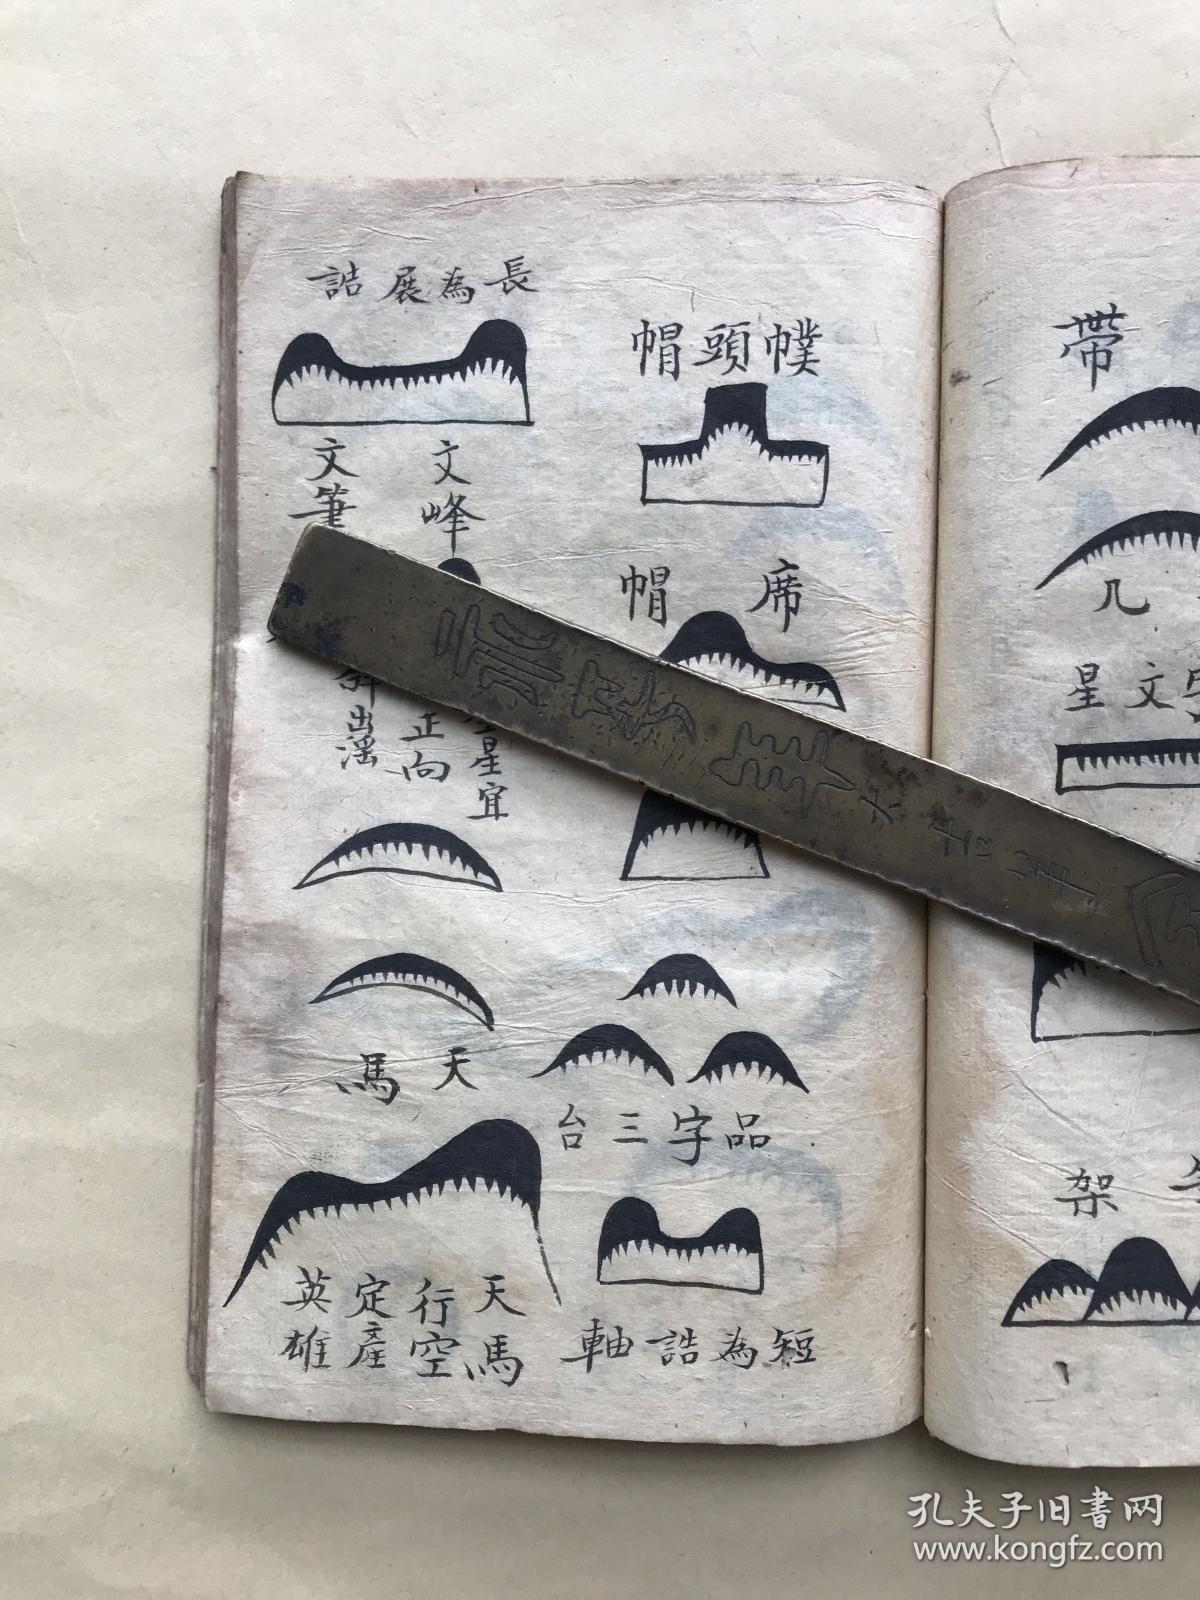 帶
几
星文
架
幞頭帽
席帽
品字三台
短為誥軸
長為展誥
文峰
文筆
星宜
正向
斜出滛
天馬
天馬
行空
定產
英雄
大吉羊
孔夫子旧书网
www.kongfz.com